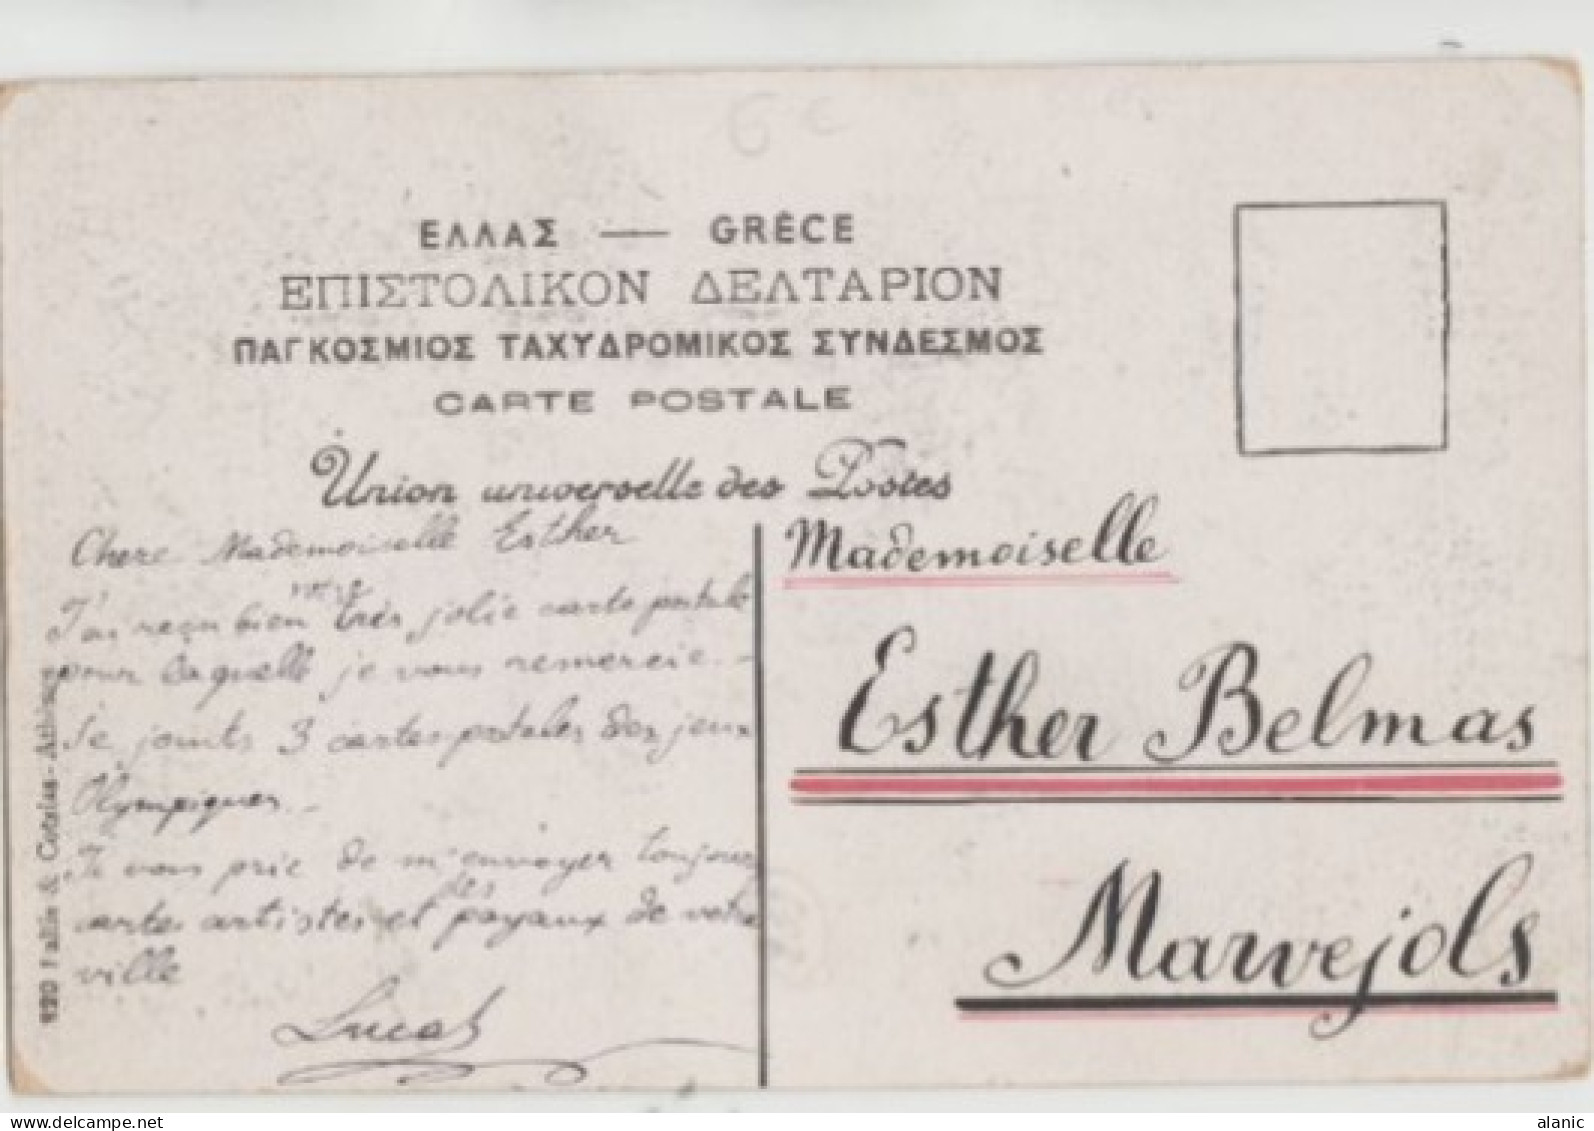 6 c
ΕΛΛΑΣ — GRÈCE
ΕΠΙΣΤΟΛΙΚΟΝ ΔΕΛΤΑΡΙΟΝ
ΠΑΓΚΟΣΜΙΟΣ ΤΑΧΥΔΡΟΜΙΚΟΣ ΣΥΝΔΕΣΜΟΣ
CARTE POSTALE
Union universelle des Postes
Chere Mademoiselle Esther
votre
J'ai reçu bien très jolie carte postale
pour laquelle je vous remercie. -
Je joints 3 cartes postales des jeux
Olympiques -
Je vous prie de m'envoyer toujours
des
cartes artistes et payaux de votre
ville
Lucas
920 Pallis & Cotzias - Athènes
Mademoiselle
Esther Belmas
Marvejols
delcampe.net
alanic